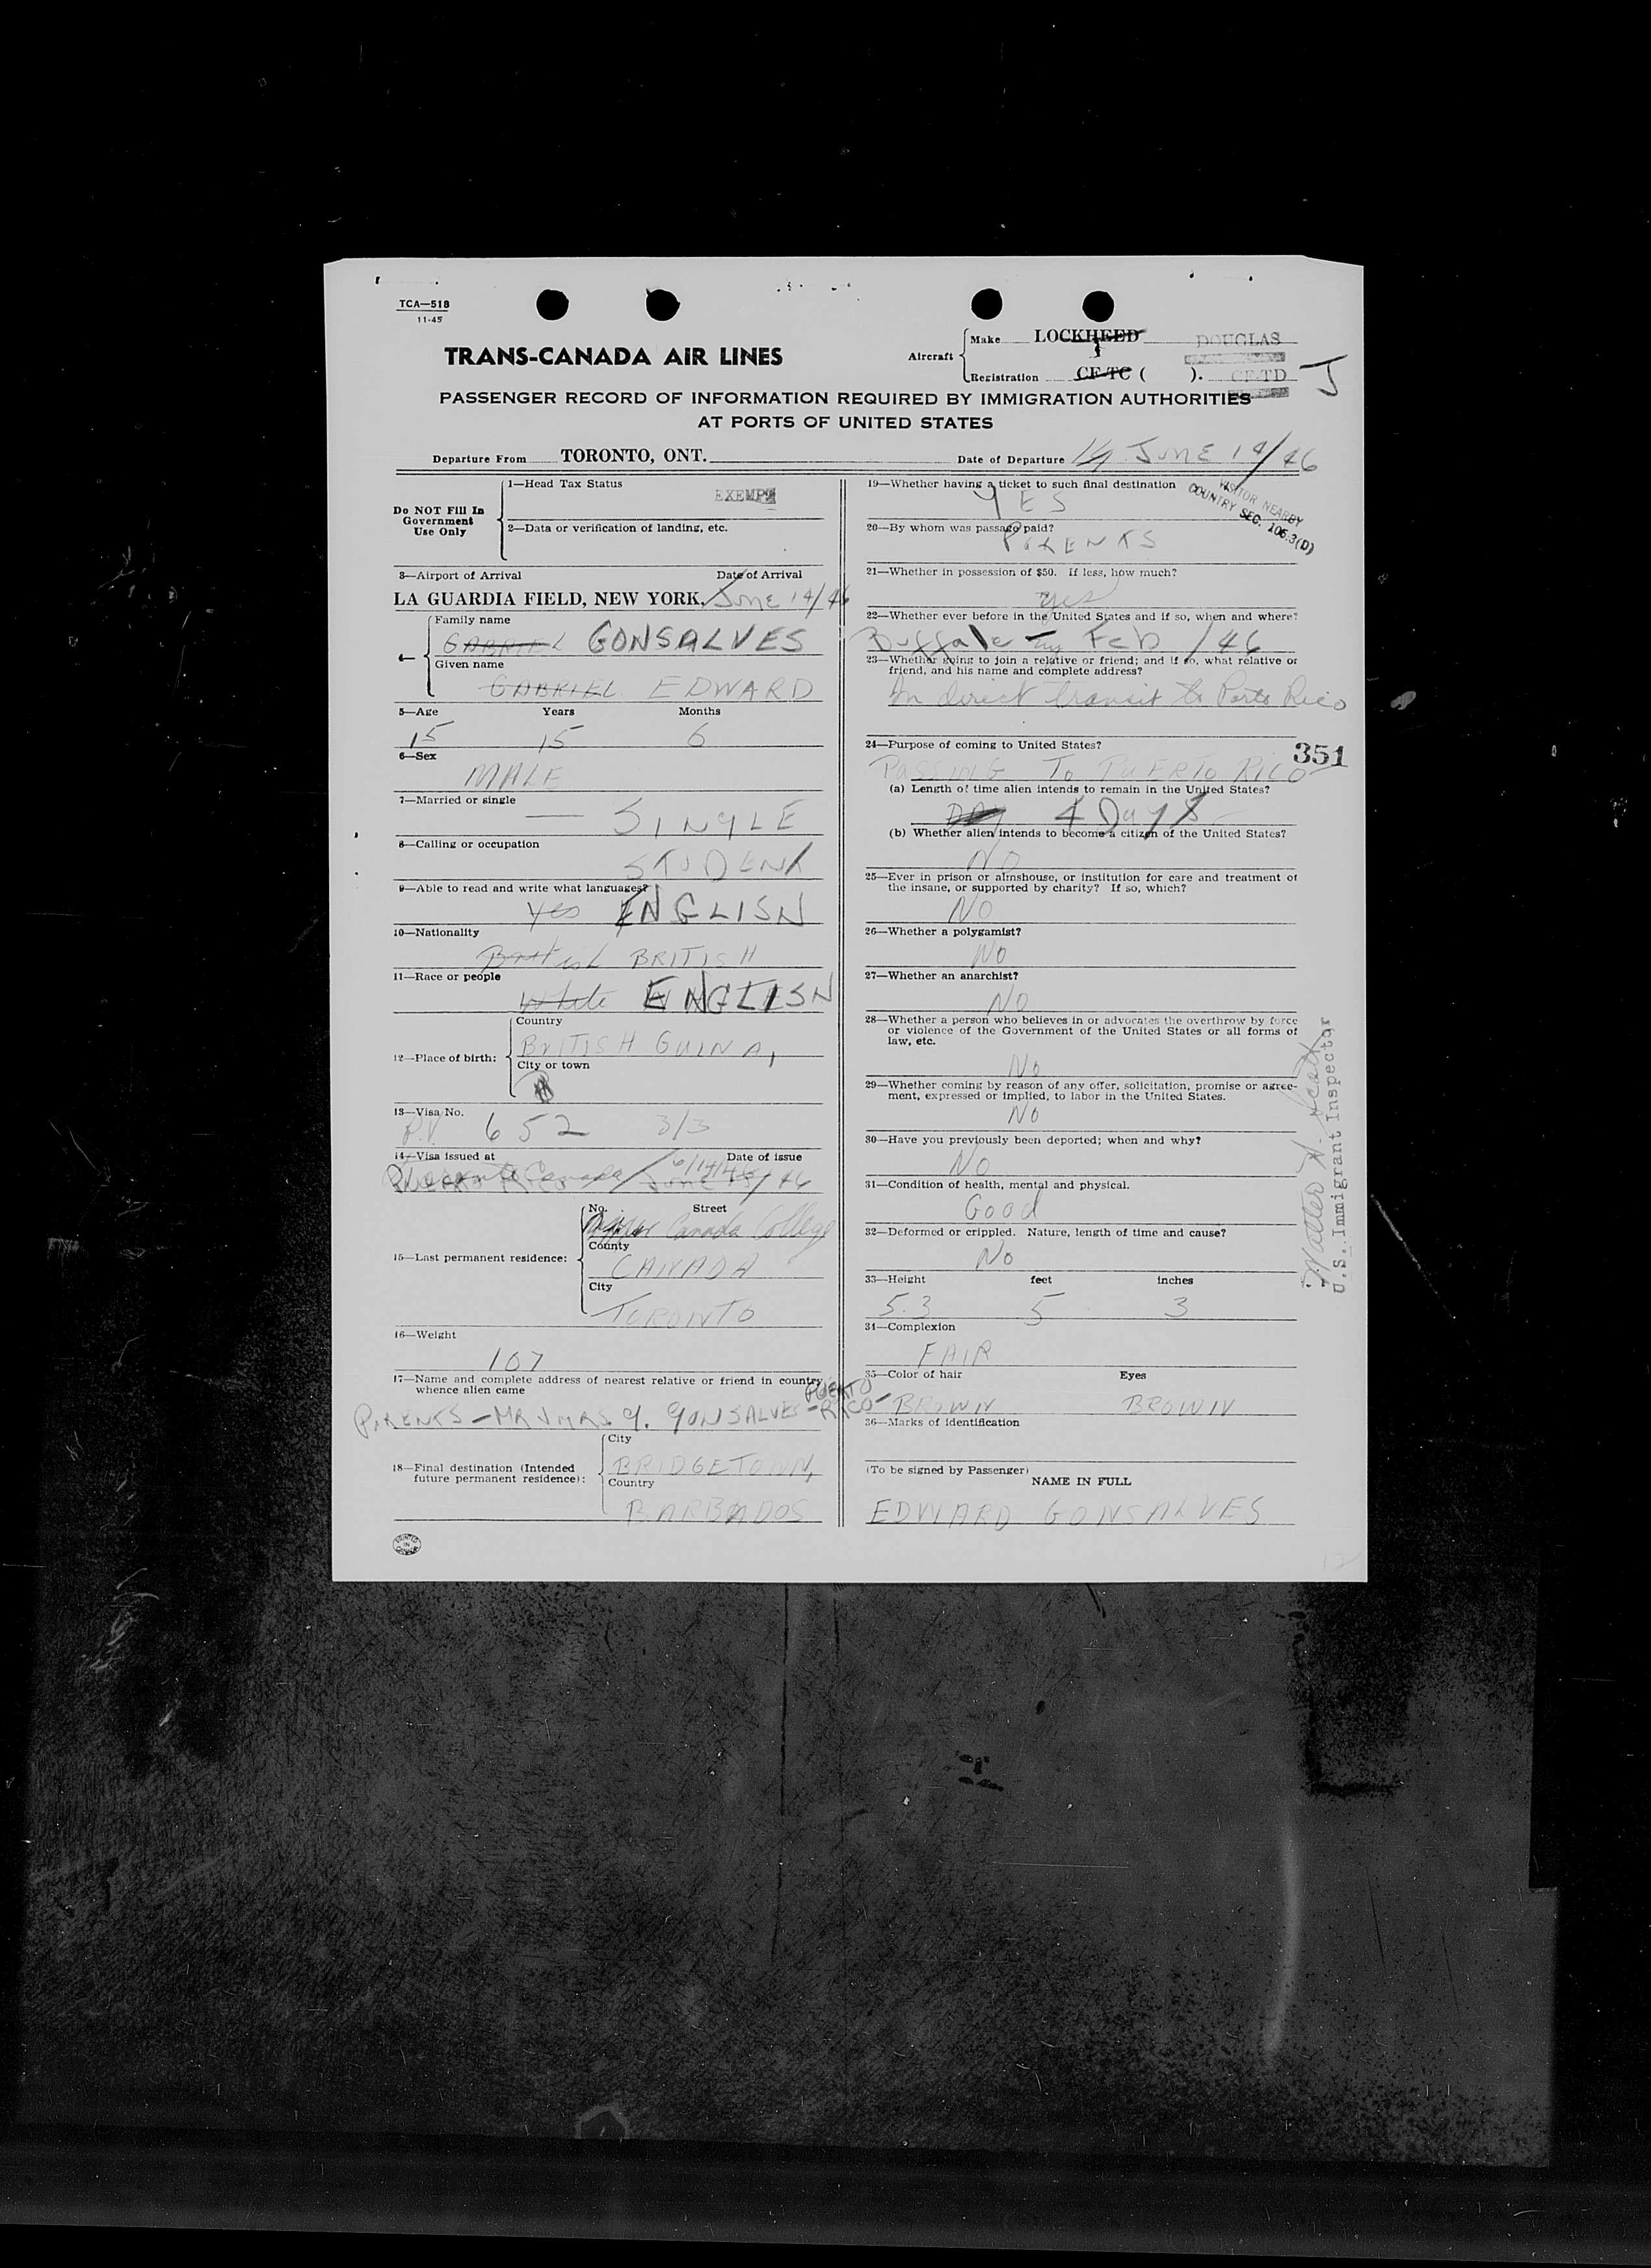 TCA—518
11-45
TRANS-CANADA AIR LINES
Aircraft
Make LOCKHEED DOUGLAS
Registration CF-TC ( ). CF-TD J
PASSENGER RECORD OF INFORMATION REQUIRED BY IMMIGRATION AUTHORITIES
AT PORTS OF UNITED STATES
Departure From TORONTO, ONT. Date of Departure 14 JUNE 14/46
Do NOT Fill In
Government
Use Only
1—Head Tax Status
EXEMPT
2—Data or verification of landing, etc.
3—Airport of Arrival Date of Arrival
LA GUARDIA FIELD, NEW YORK, June 14/46
4—
Family name
GABRIEL GONSALVES
Given name
GABRIEL EDWARD
5—Age Years Months
15 15 6
6—Sex
MALE
7—Married or single
— SINGLE
8—Calling or occupation
STUDENT
9—Able to read and write what languages?
Yes ENGLISH
10—Nationality
British BRITISH
11—Race or people
White ENGLISH
12—Place of birth:
Country
BRITISH GUINA,
City or town
13—Visa No.
P.V. 652 3/3
14—Visa issued at Date of issue
Canada 6/14/46 / 46
15—Last permanent residence:
No. Street
Upper Canada College
County
CANADA
City
TORONTO
16—Weight
107
17—Name and complete address of nearest relative or friend in country
whence alien came
PARENTS — MR & MRS G. GONSALVES — PUERTO RICO —
18—Final destination (Intended
future permanent residence):
City
BRIDGETOWN,
Country
BARBADOS
PRINTED IN CANADA
19—Whether having a ticket to such final destination
YES
VISITOR NEARBY
COUNTRY SEC. 106.3(D)
20—By whom was passage paid?
PARENTS
21—Whether in possession of $50. If less, how much?
yes
22—Whether ever before in the United States and if so, when and where?
Buffalo — Feb /46
23—Whether going to join a relative or friend; and if so, what relative or
friend, and his name and complete address?
In direct transit to Porto Rico
24—Purpose of coming to United States?
351
PASSING TO PUERTO RICO
(a) Length of time alien intends to remain in the United States?
DAY 4 Days
(b) Whether alien intends to become a citizen of the United States?
NO
25—Ever in prison or almshouse, or institution for care and treatment of
the insane, or supported by charity? If so, which?
NO
26—Whether a polygamist?
NO
27—Whether an anarchist?
NO
28—Whether a person who believes in or advocates the overthrow by force
or violence of the Government of the United States or all forms of
law, etc.
No
29—Whether coming by reason of any offer, solicitation, promise or agree-
ment, expressed or implied, to labor in the United States.
NO
30—Have you previously been deported; when and why?
No
31—Condition of health, mental and physical.
Good
32—Deformed or crippled. Nature, length of time and cause?
No
33—Height feet inches
5.3 5 3
34—Complexion
FAIR
35—Color of hair Eyes
BROWN BROWN
36—Marks of identification
(To be signed by Passenger)
NAME IN FULL
EDWARD GONSALVES
U.S. Immigrant Inspector